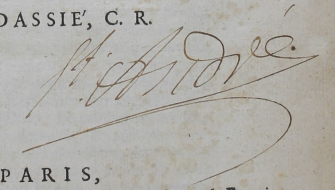 DASSIÉ, C. R.
St. André.
PARIS,